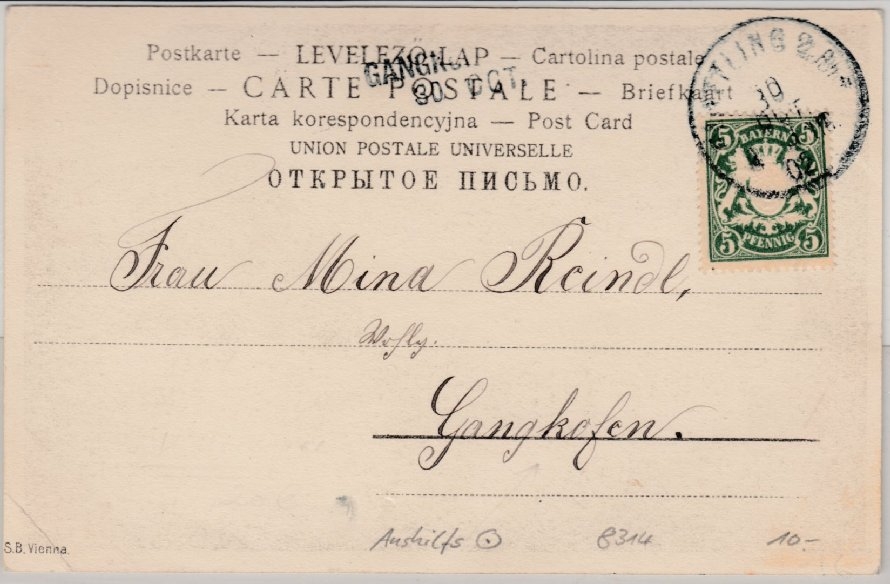 Postkarte — LEVELEZŐ-LAP — Cartolina postale
Dopisnice — CARTE POSTALE — Briefkaart
Karta korespondencyjna — Post Card
UNION POSTALE UNIVERSELLE
ОТКРЫТОЕ ПИСЬМО.
30 OCT.
30
02
5 BAYERN 5
5 PFENNIG 5
Frau Mina Reindl,
Gangkofen.
S.B. Vienna.
Aushilfs
8314
10.-